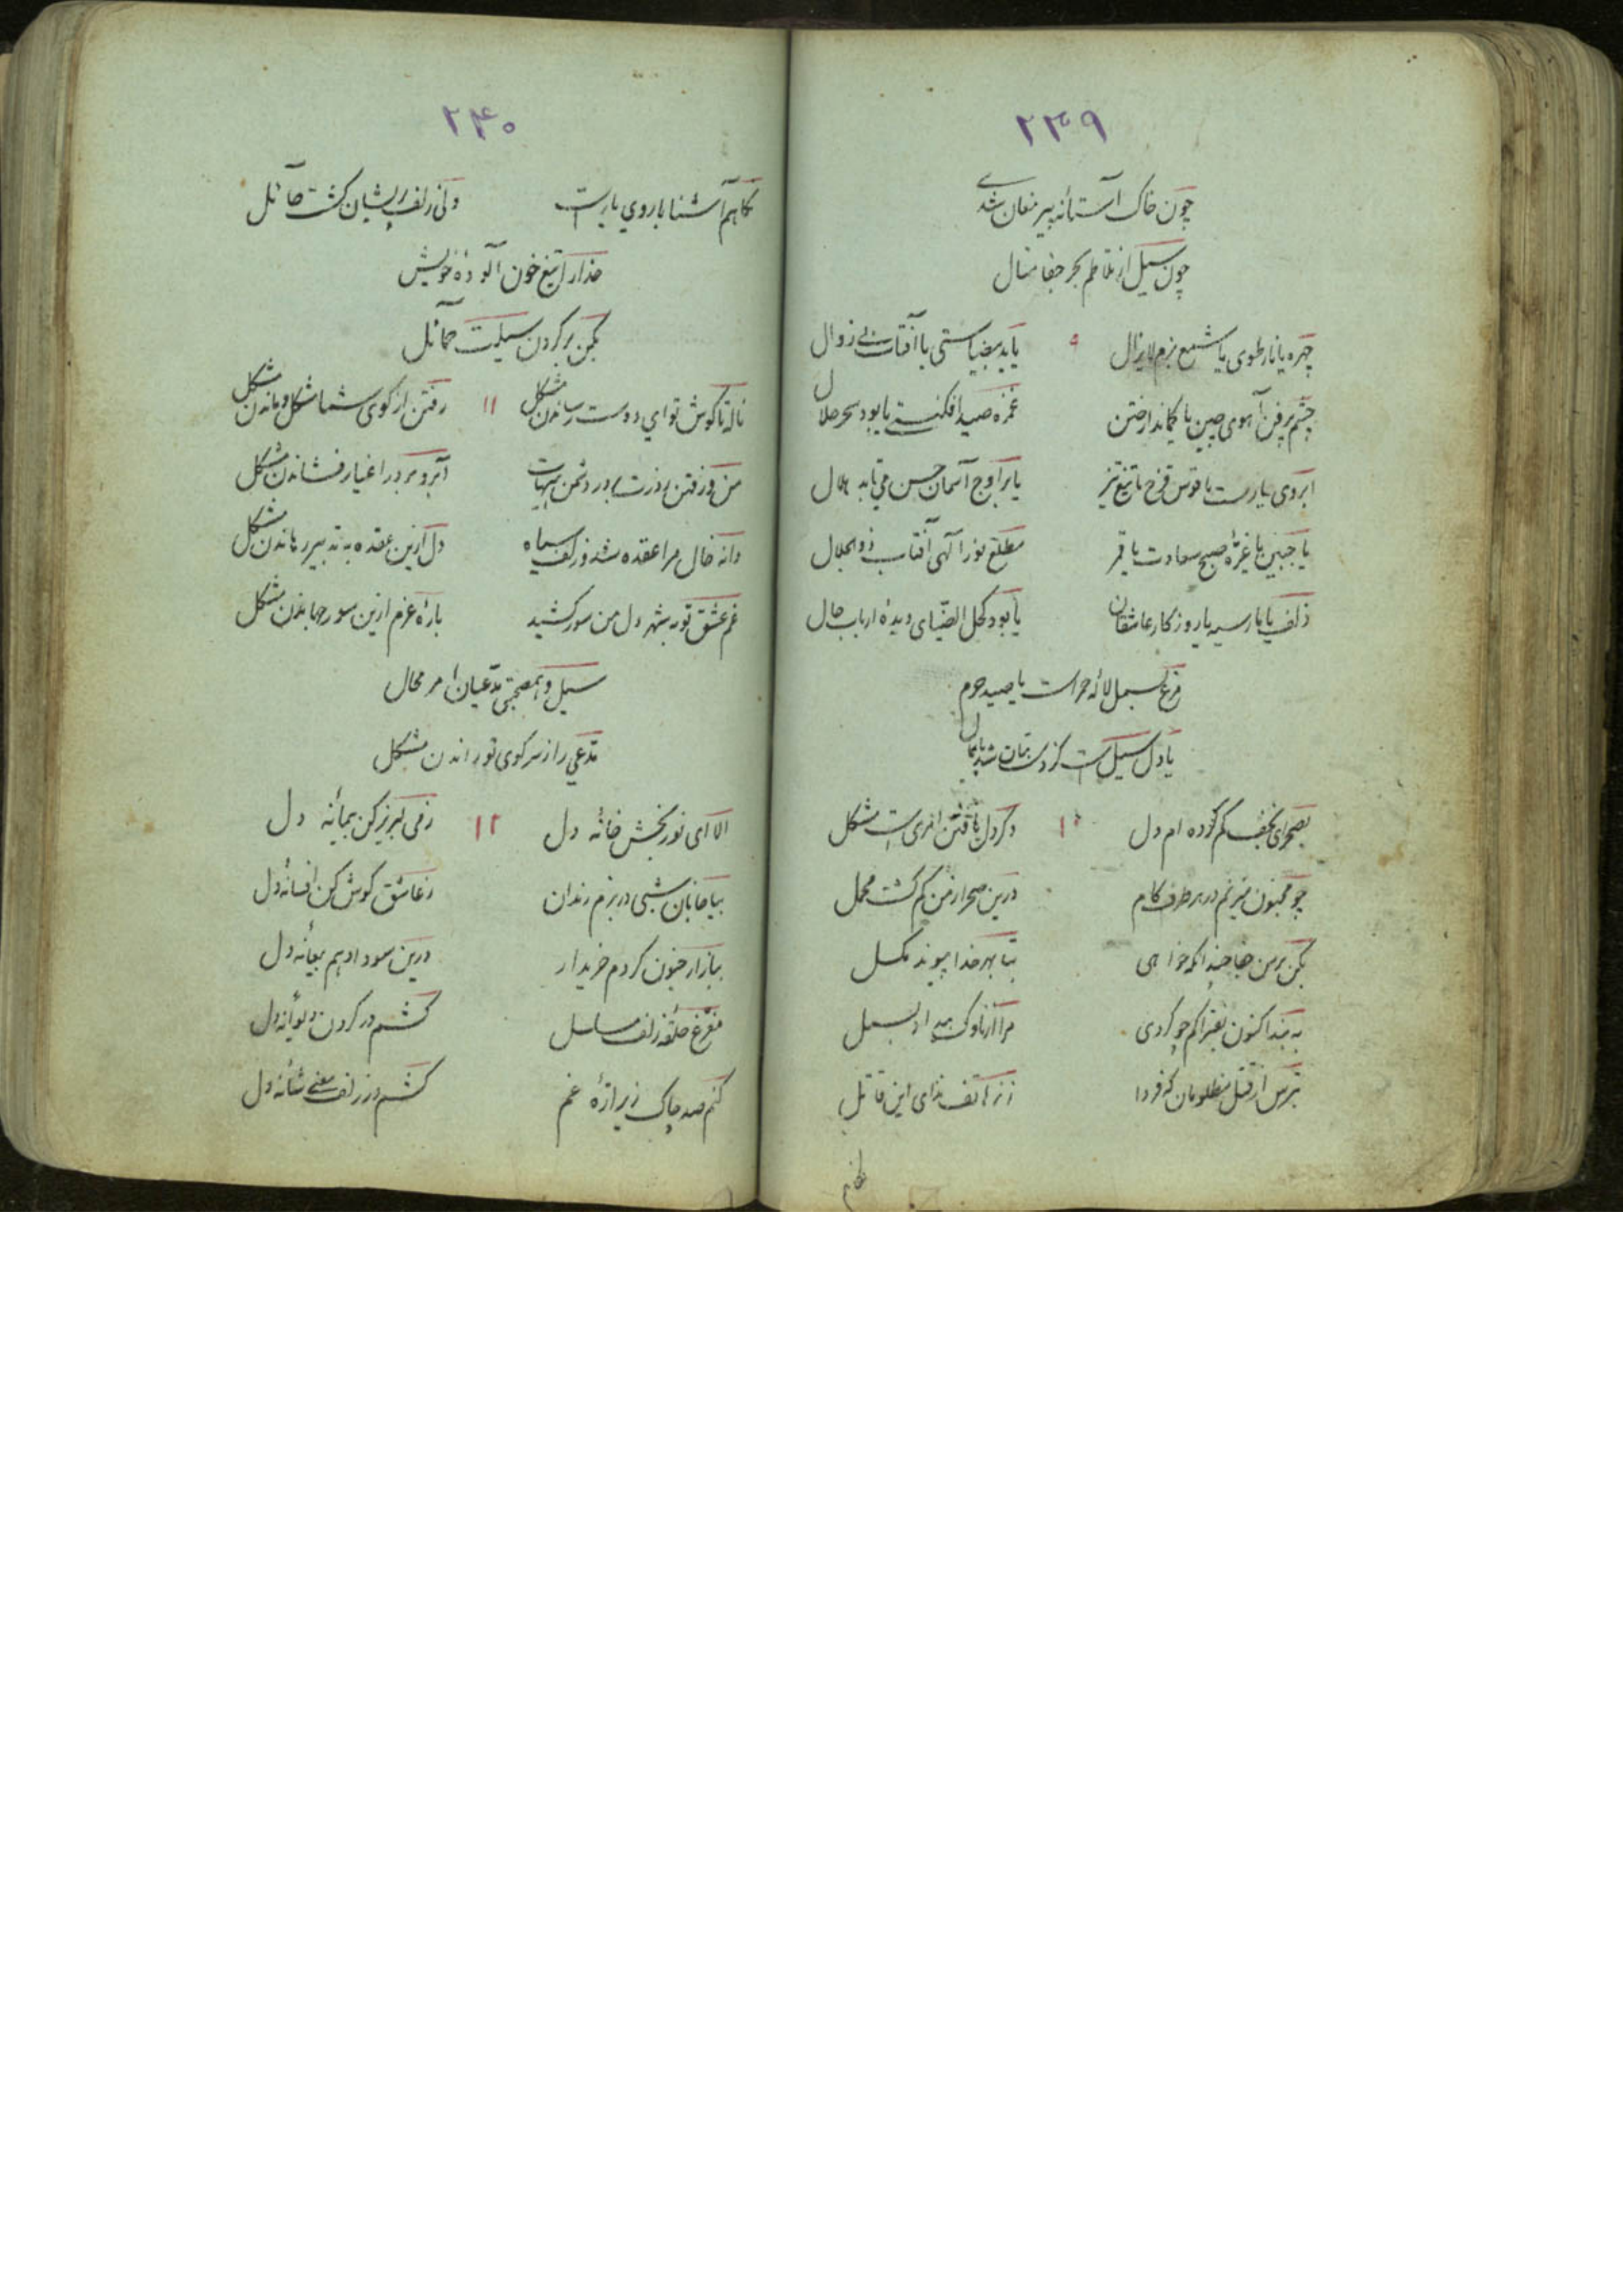 ۲۳۹
چون خاک آستانهٔ پیر مغان شدی
چون سیل از تلاطم بحر جفا منال
چهره یا نار طوی یا شمع بزم لایزال ۹ یا ید بیضاستی یا آفتاب بی زوال
چشم پرفن آهوی چین یا کماندار ختن غمزه صید افکنستی یا بود سحر حلال
ابروی یارست یا قوس قزح یا تیغ تیز یا بر اوج آسمان حسن می تابد هلال
یا جبین یا غرّهٔ صبح سعادت یا قمر مطلع نور الهی آفتاب ذوالجلال
زلف یا مار سیه یا روزکار عاشقان یا بود کحل الضیای دیدهٔ ارباب حال
مرغ بسمل لاله حمراست یا صید حرم
یا دل سیل است کز دست بتان شد پایمال
بصحرای نجف کم کرده ام دل ۱۰ دکر دل یافتن امری است مشکل
چو مجنون میزنم در هر طرف کام درین صحرا ز من کم کشت محمل
بکن بر من جفا چندانکه خواهی بتا بهر خدا پیوند مکسل
به بند اکنون بفتراکم چو کردی مرا از ناوک بیداد بسمل
بترس از قتل مظلومان که فردا
۲۴۰
نکاهم آشنا با روی یار است ولی زلف پریشان کشت حائل
حذار از تیغ خون آلوده خویش
بکن بر کردن سیلت حمائل
ناله تا کوش تو ای دوست رساندن مشکل ۱۱ رفتن از کوی شما مشکل و ماندن مشکل
آبرو بر در اغیار فشاندن مشکل
دانه خال مرا عقده شد و زلف سیاه دل ازین عقده به تدبیر رهاندن مشکل
غم عشق تو به شهر دل من سور کشید بارهٔ عزم ازین سور جهاندن مشکل
سیل و همصحبتی مدّعیان امر محال
مدّعی را ز سر کوی تو راندن مشکل
الا ای نور بخش خانه دل ۱۲ ز می لبریز کن پیمانه دل
بیا جانان شبی در بزم رندان ز عاشق کوش کن افسانه دل
ببازار جنون کردم خریدار درین سودا دهم بیعانه دل
ز مفرغ حلقه زلف مسلسل کشم در کردن دیوانه دل
کنم صد چاک زیر ارّهٔ غم کشم در زلف معنی شانه دل